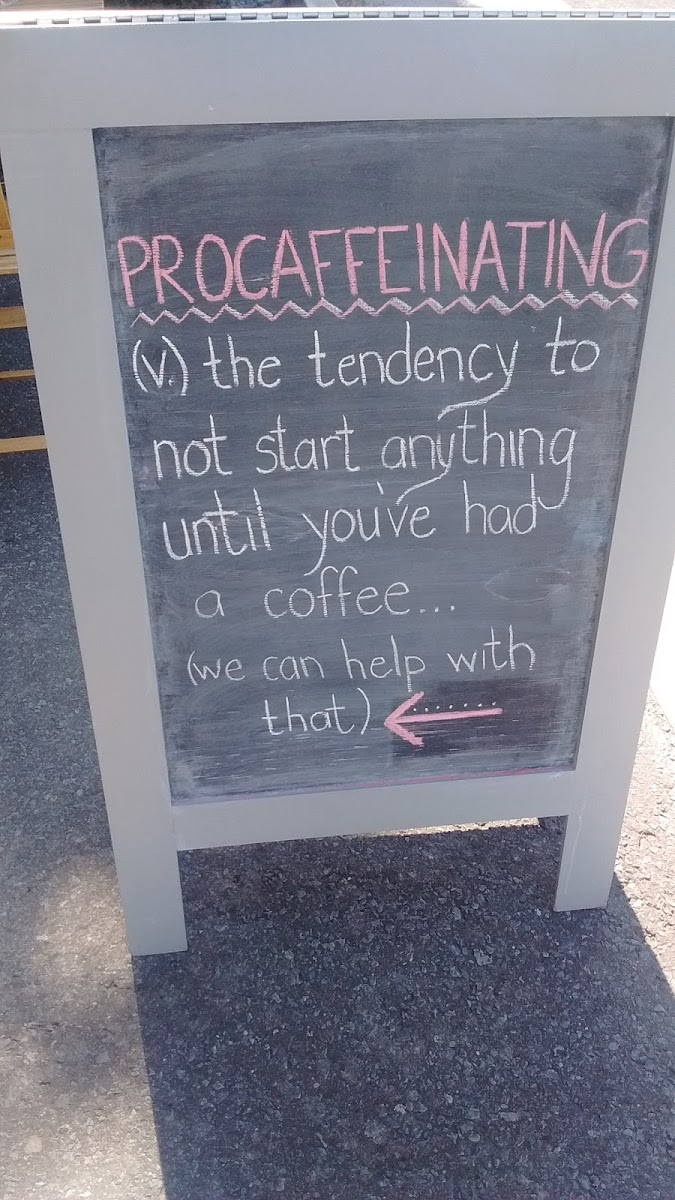 PROCAFFEINATING
(v.) the tendency to
not start anything
until you've had
a coffee...
(we can help with
that)